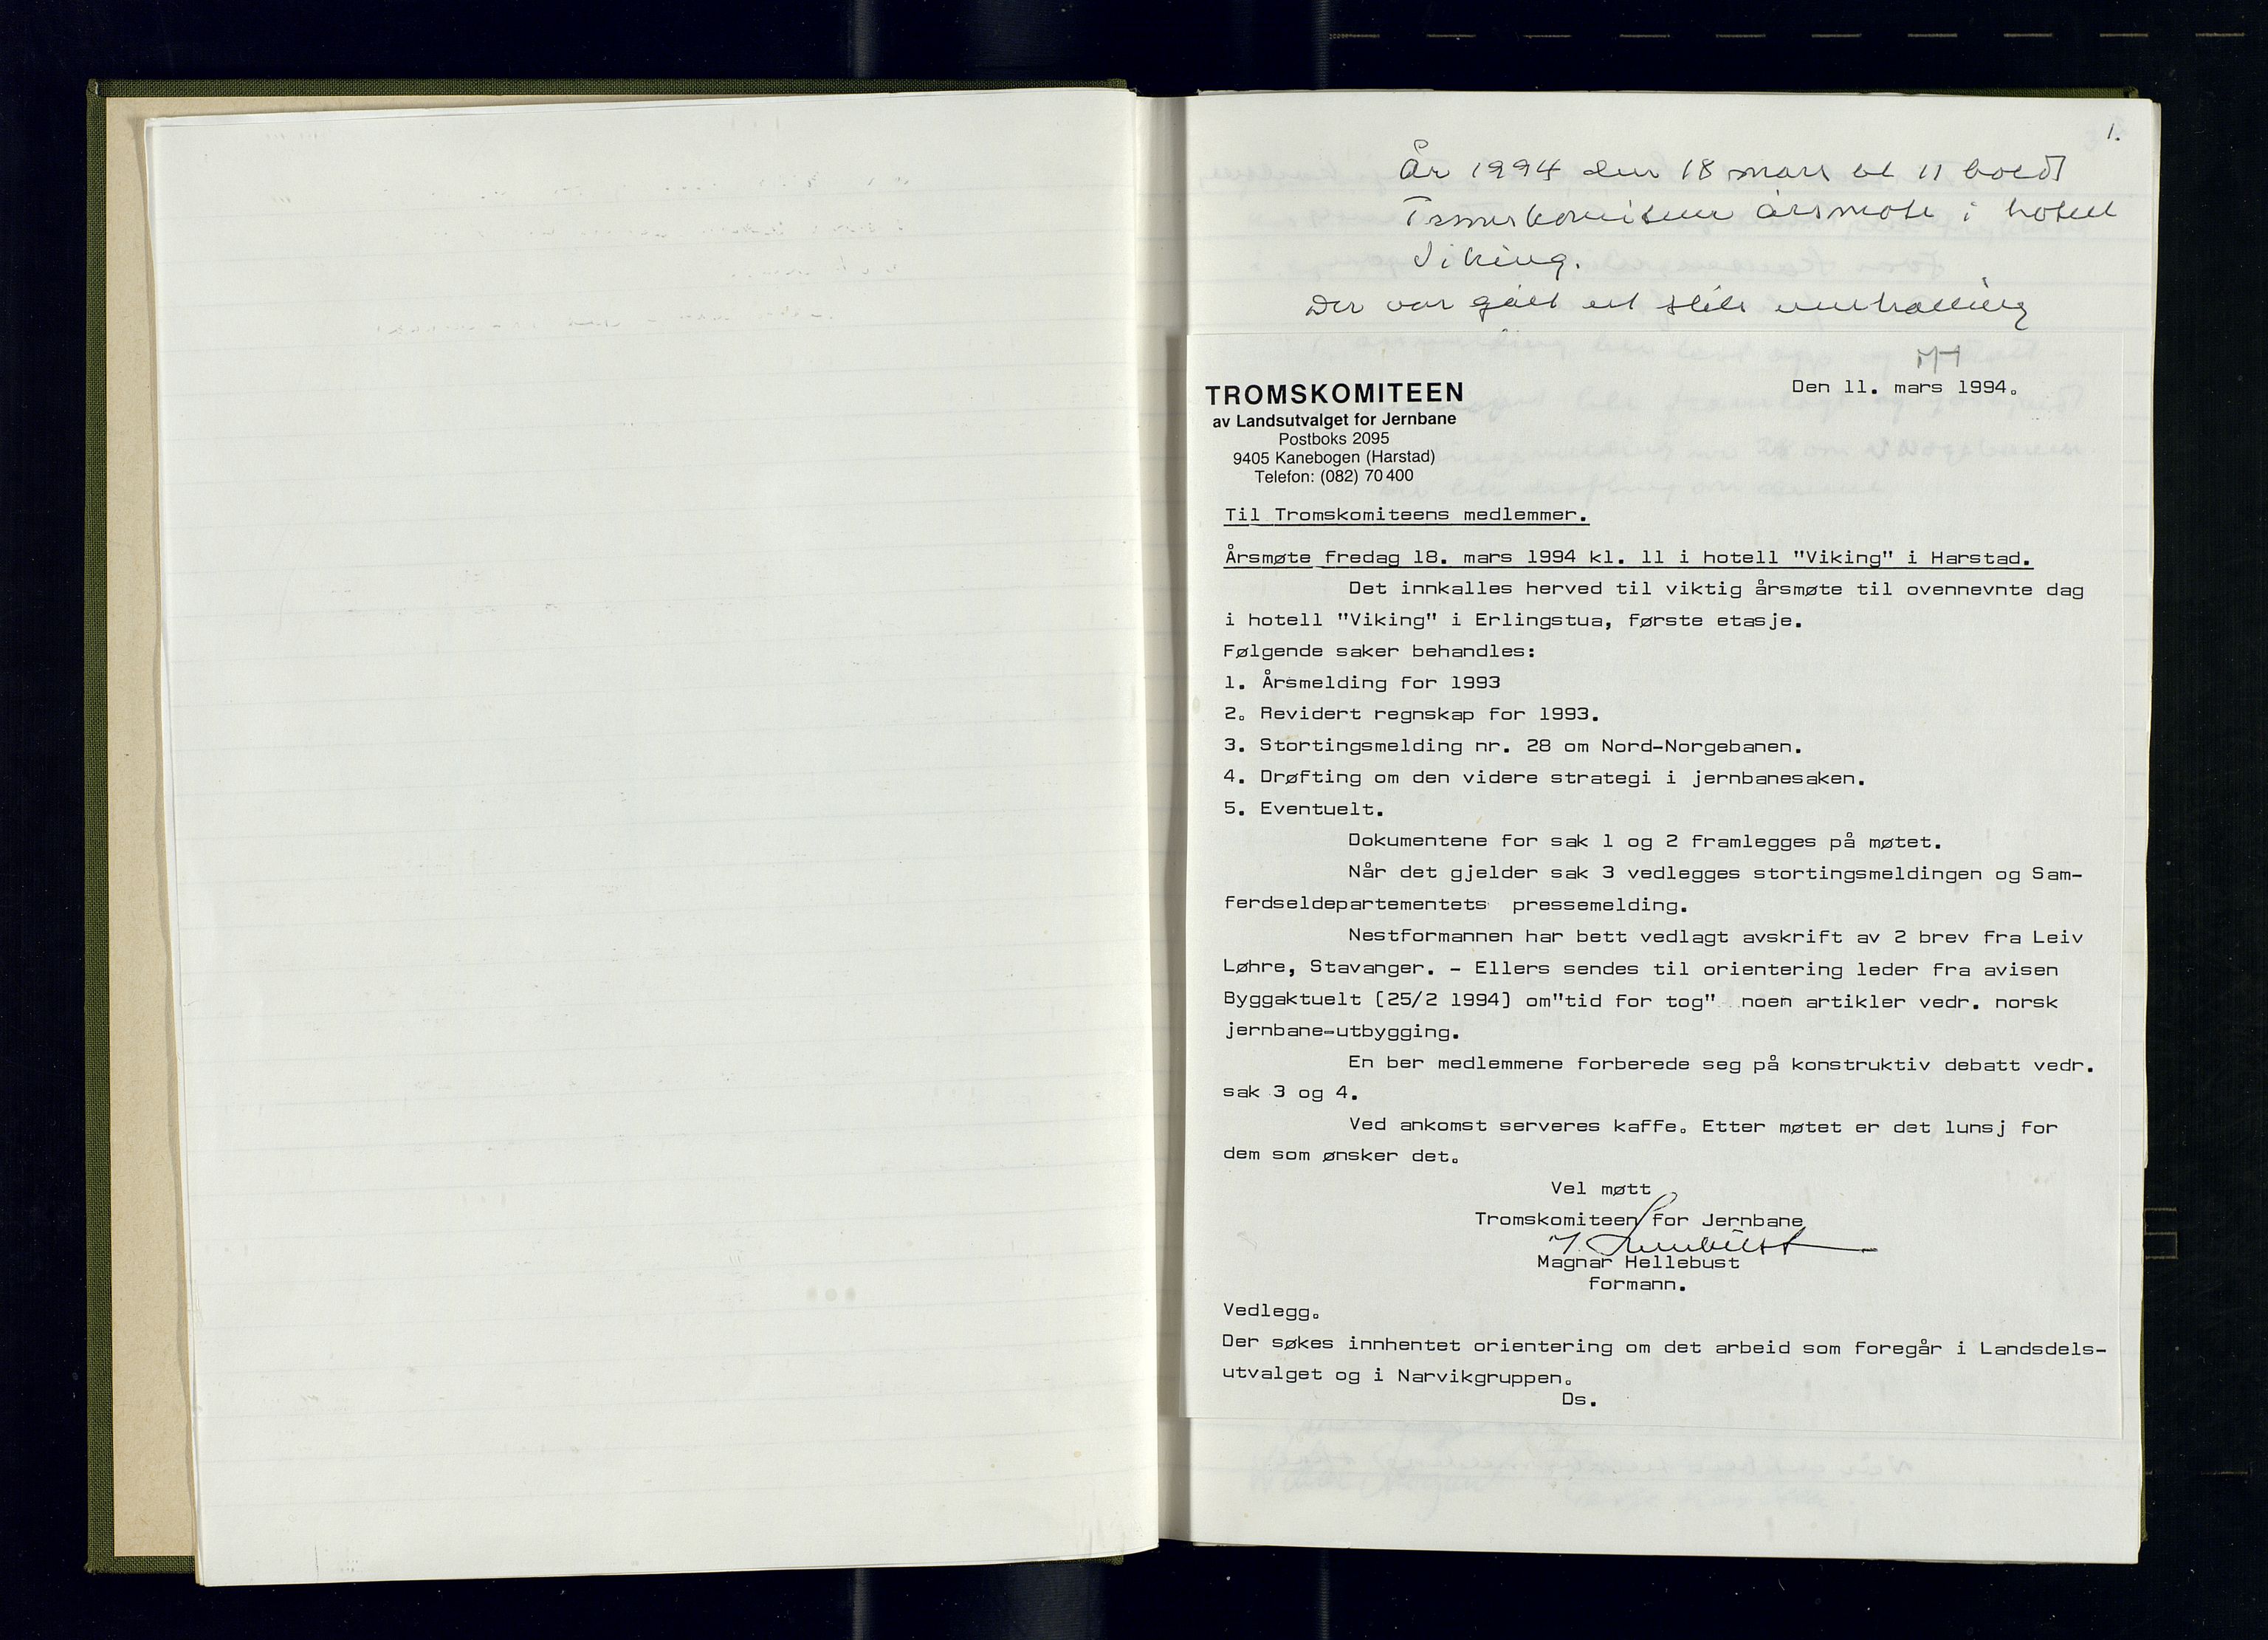 1.
År 1994 den 18 mars kl 11 holdt
Tromskomiteen årsmøte i hotell
Viking.
Der var gått ut slik innkalling
MH
Den 11. mars 1994.
TROMSKOMITEEN
av Landsutvalget for Jernbane
Postboks 2095
9405 Kanebogen (Harstad)
Telefon: (082) 70 400
Til Tromskomiteens medlemmer.
Årsmøte fredag 18. mars 1994 kl. 11 i hotell "Viking" i Harstad.
Det innkalles herved til viktig årsmøte til ovennevnte dag
i hotell "Viking" i Erlingstua, første etasje.
Følgende saker behandles:
1. Årsmelding for 1993
2. Revidert regnskap for 1993.
3. Stortingsmelding nr. 28 om Nord-Norgebanen.
4. Drøfting om den videre strategi i jernbanesaken.
5. Eventuelt.
Dokumentene for sak 1 og 2 framlegges på møtet.
Når det gjelder sak 3 vedlegges stortingsmeldingen og Sam-
ferdseldepartementets pressemelding.
Nestformannen har bett vedlagt avskrift av 2 brev fra Leiv
Løhre, Stavanger. - Ellers sendes til orientering leder fra avisen
Byggaktuelt (25/2 1994) om"tid for tog" noen artikler vedr. norsk
jernbane-utbygging.
En ber medlemmene forberede seg på konstruktiv debatt vedr.
sak 3 og 4.
Ved ankomst serveres kaffe. Etter møtet er det lunsj for
dem som ønsker det.
Vel møtt
Tromskomiteen for Jernbane
M. Hellebust
Magnar Hellebust
formann.
Vedlegg.
Der søkes innhentet orientering om det arbeid som foregår i Landsdels-
utvalget og i Narvikgruppen.
Ds.